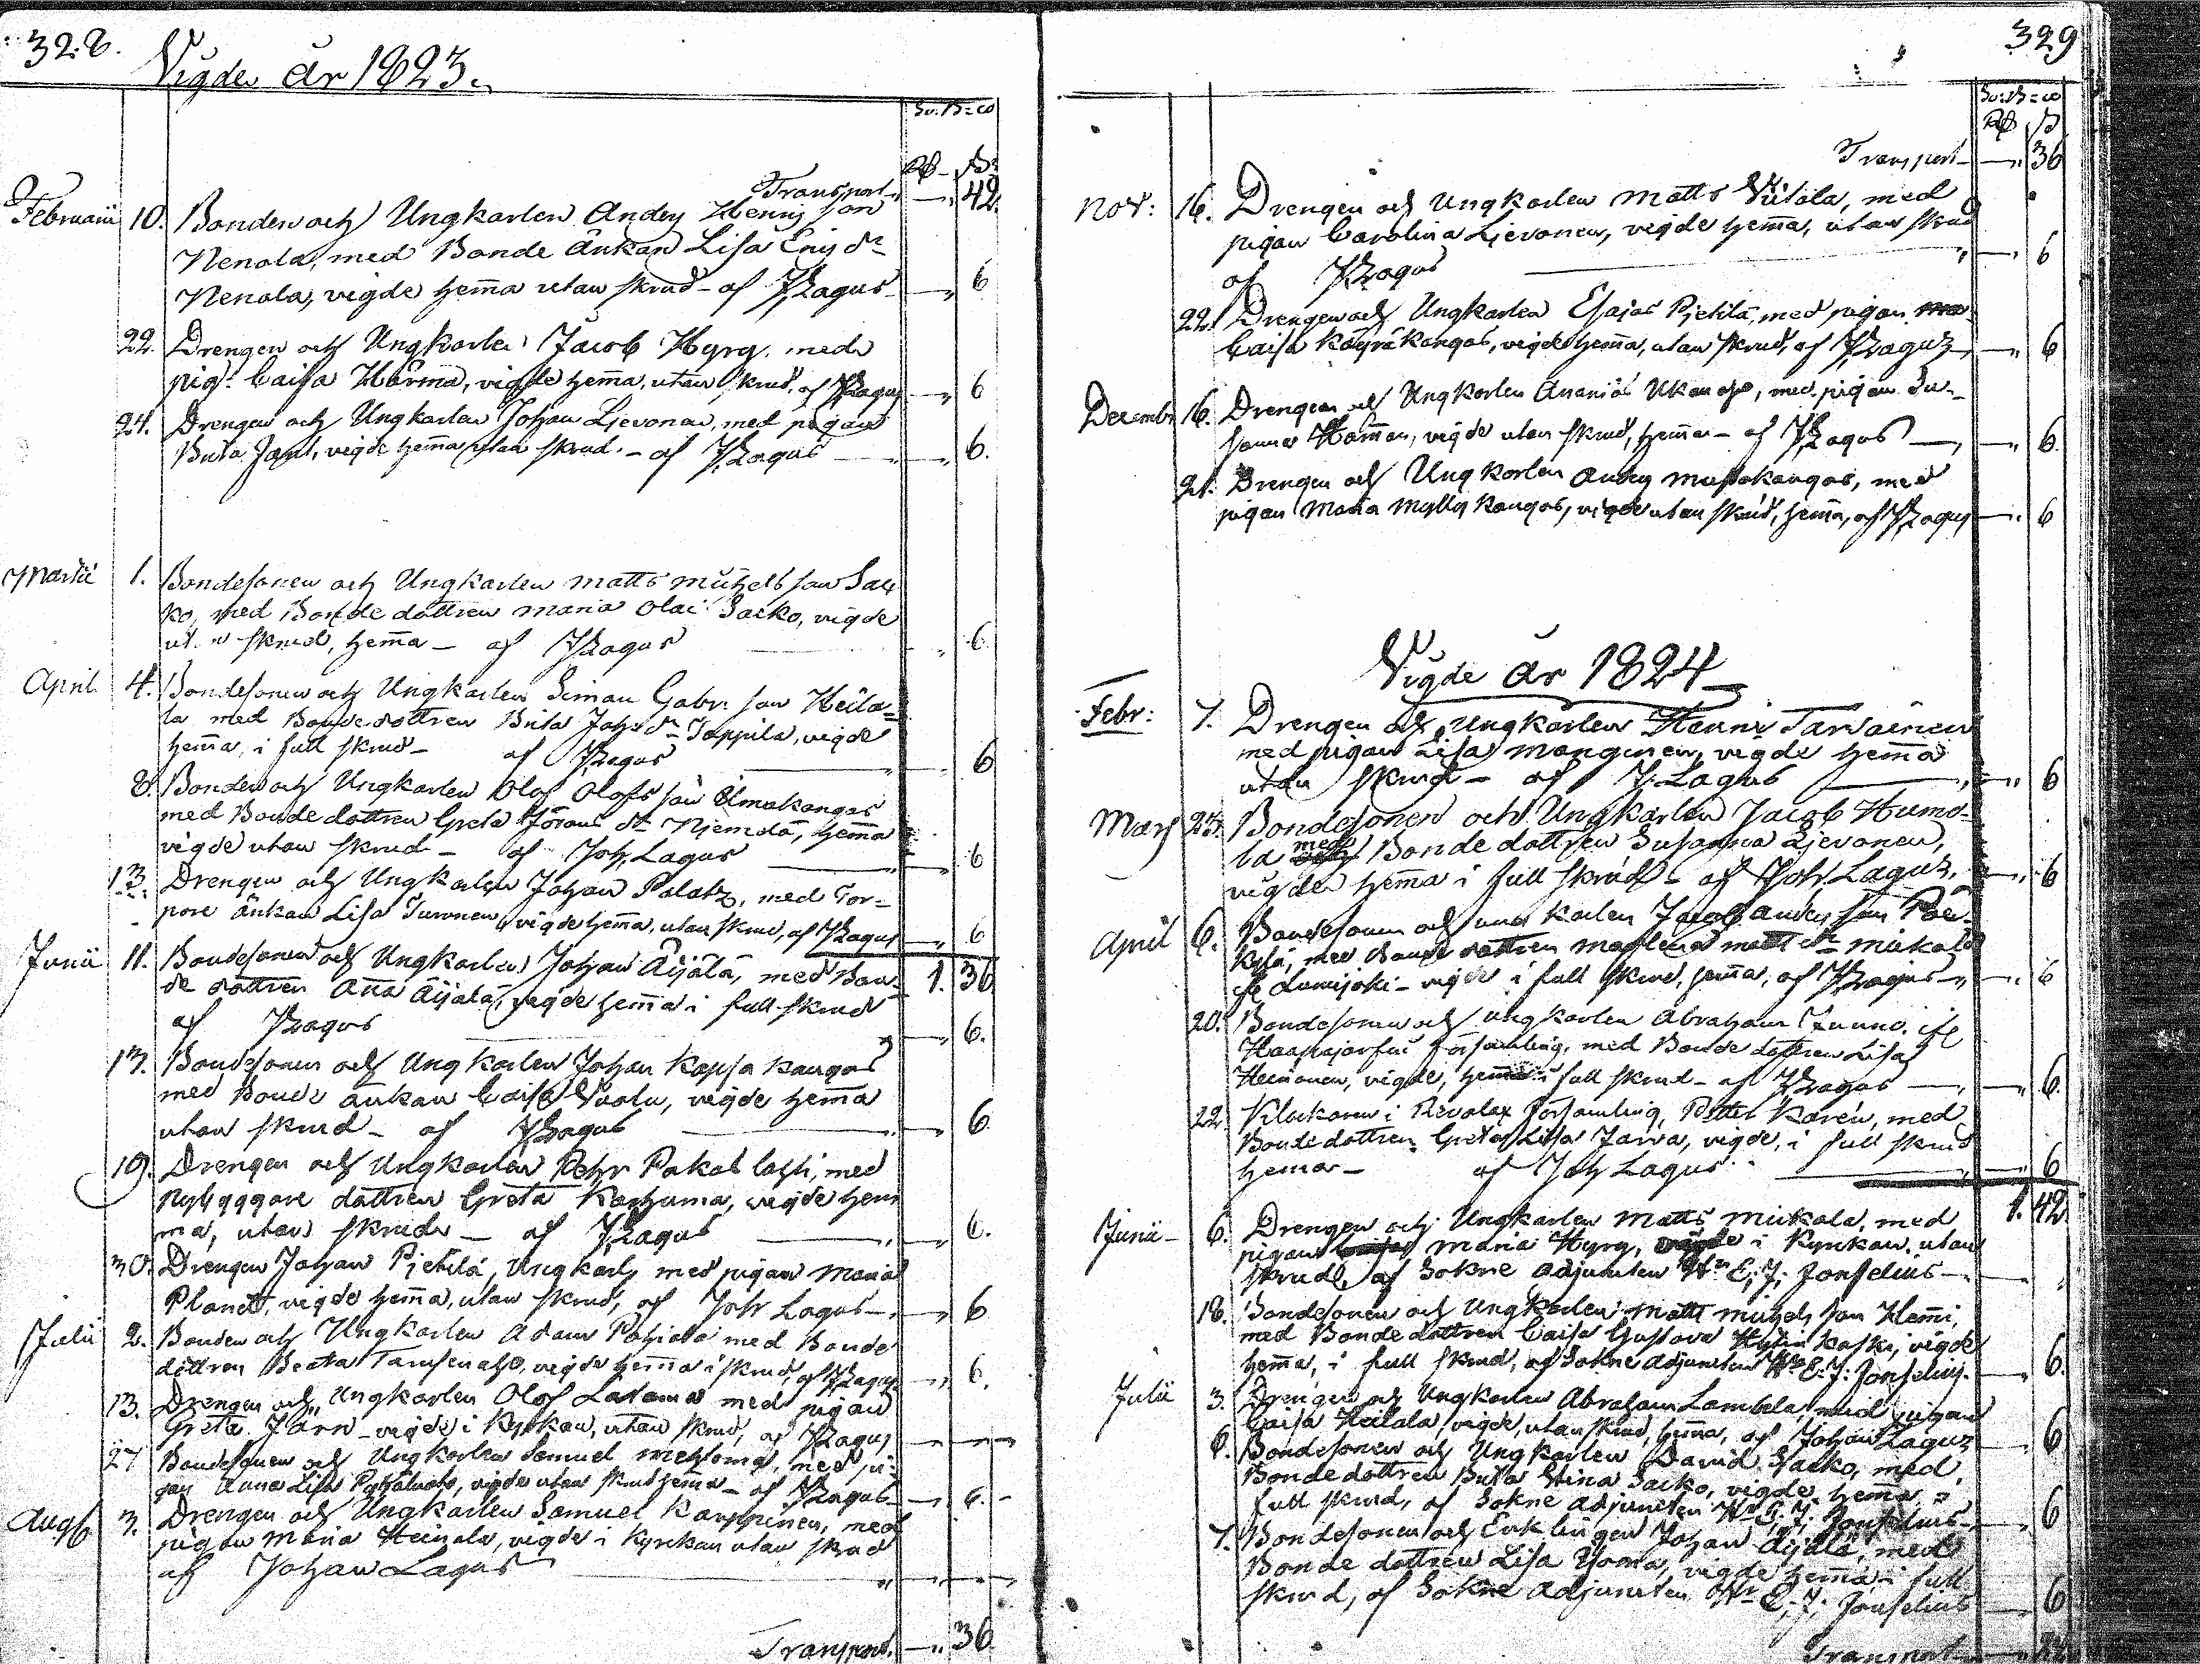 328.
Vigde år 1823.
Sv. B:co
Rd ß
Transport " 42.
Februarii 10. Bonden och Ungkarlen Anders Henrics son
Nenola, med Bonde Änkan Lisa Erics dr
Nenola, vigde hemma utan skrud - af J. Lagus " 6
22. Drengen och Ungkarlen Jacob Hyry, med
pig. Caisa Härmä, vigde hemma, utan skrud, af J. Lagus " 6
24. Drengen och Ungkarlen Johan Ljevonen, med pigan
Brita, vigde hemma utan skrud. - af J. Lagus " 6.
Martii 1. Bondesonen och Ungkarlen Matts Michels son Sac
ko, med Bonde dottren Maria Olai Sacko, vigde
utan skrud, hemma - af J. Lagus " 6
April 4. Bondesonen och Ungkarlen Simon Gabr. son Heila=
la med Bonde dottren Brita Johs dr Toppila, vigde
hemma, i full skrud - af J. Lagus " 6
8. Bonden och Ungkarlen Olof Olofs son Ulmakangas
med Bonde dottren Greta Görans dr Njemelä, hemma
vigde utan skrud - af Joh. Lagus " 6
13. Drengen och Ungkarlen Johan Palatz, med Tor=
pare änkan Lisa Turunen, vigde hemma, utan skrud, af J. Lagus " 6
1. 36
Junii 11. Bondesonen och Ungkarlen Johan Äijälä, med Bon=
de dottren Anna Äijälä, vigde hemma i full skrud
af J. Lagus " 6.
13. Bondesonen och Ungkarlen Johan Kopsakangas
med Bonde änkan Caisa Vuolu, vigde hemma
utan skrud - af J. Lagus " 6
19. Drengen och Ungkarlen Pehr Pakaslahti, med
Nybyggare dottren Greta Karhuma, vigde hem
ma, utan skrud - af J. Lagus " 6.
30. Drengen Johan Pjetilä, Ungkarl, med pigan Maria
Planet, vigde hemma, utan skrud, af Joh Lagus - " 6
Julii 2. Bonden och Ungkarlen Adam Pohjola med Bonde
dottren Beata, vigde hemma i skrud, af J. Lagus " 6.
13. Drengen och Ungkarlen Olof Latoma med pigan
Greta Järn - vigde i Kyrkan, utan skrud, af J. Lagus
27 Bondesonen och Ungkarlen Samuel Mehtomä, med pi=
gan Anna Lisa, vigde utan skrud hemma - af J. Lagus " 6. -
Aug. 3. Drengen och Ungkarlen Samuel Karppinen, med
pigan Maria Heinola, vigde i Kyrckan utan skrud
af Johan Lagus
Transport. " 36
329
Sv: B:co
Rd ß
Transport - " 36
Nov: 16. Drengen och Ungkarlen Matts Viitala, med
pigan Carolina Ljevonen, vigde hemma, utan skrud
af J. Lagus " 6
22. Drengen och Ungkarlen Esajas Pjetilä, med pigan
Caisa Käyräkangas, vigde hemma, utan skrud, af J. Lagus " 6
Decemb: 16. Drengen och Ungkarlen Ananias, med pigan Su=
sanna, vigde utan skrud, hemma - af J. Lagus " 6
21. Drengen och Ungkarlen Anders Mustakangas, med
pigan Maria Myllykangas, vigde utan skrud, hemma, af J. Lagus " 6
Vigde år 1824
Febr: 7. Drengen och Ungkarlen Henric Tarvainen
med pigan Lisa Manginen, vigde hemma
utan skrud - af J. Lagus " 6
Mars 23. Bondesonen och Ungkarlen Jacob Humo=
la med Bonde dottren Susanna Ljevonen,
vigde hemma i full skrud - af Joh. Lagus. " 6
April 6. Bondesonen och Ungkarlen Jacob Anders son Paa-
kylä, med Bonde dottren Maglena Matts dr Mickala
ifr Lumijoki - vigde i full skrud, hemma, af J. Lagus " 6
20. Bondesonen och Ungkarlen Abraham Junno, ifr
Haapajärvi Församling, med Bonde dottren Lisa
Heinonen, vigde, hemma i full skrud - af J. Lagus " 6.
22. Klockaren i Revolax Församling, Petter Karén, med
Bonde dottren Greta Lisa Jarva, vigde, i full skrud
hemma - af Joh Lagus. " 6
1. 42.
Junii - 6. Drengen och Ungkarlen Matts Mickala, med
pigan Maria Hyry, vigde i Kyrkan, utan
skrud, af Sokne Adjuncten Hr E. J. Jonselius - "
18. Bondesonen och Ungkarlen Matts Michels son Hemmi,
med Bonde dottren Caisa Gustava, vigde
hemma, i full skrud, af Sokne Adjuncten Hr E. J. Jonselius. " 6.
Julii 3. Drengen och Ungkarlen Abraham Lambela, med pigan
Caisa Heilala, vigde, utan skrud, hemma, af Johan Lagus " 6
6. Bondesonen och Ungkarlen David Sacko, med
Bonde dottren Brita Stina Sacko, vigde, hemma, i
full skrud, af Sokne Adjuncten Hr E. J. Jonselius " 6
7. Bondesonen och Enklingen Johan Äijälä, med
Bonde dottren Lisa, vigde hemma, i full
skrud, af Sokne Adjuncten Hr E. J. Jonselius " 6
Transport